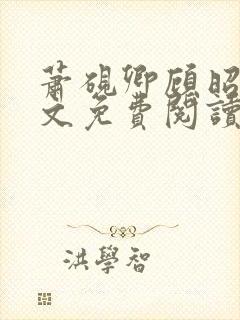 蕭硯卿顧昭
文免費閱讀
洪學智